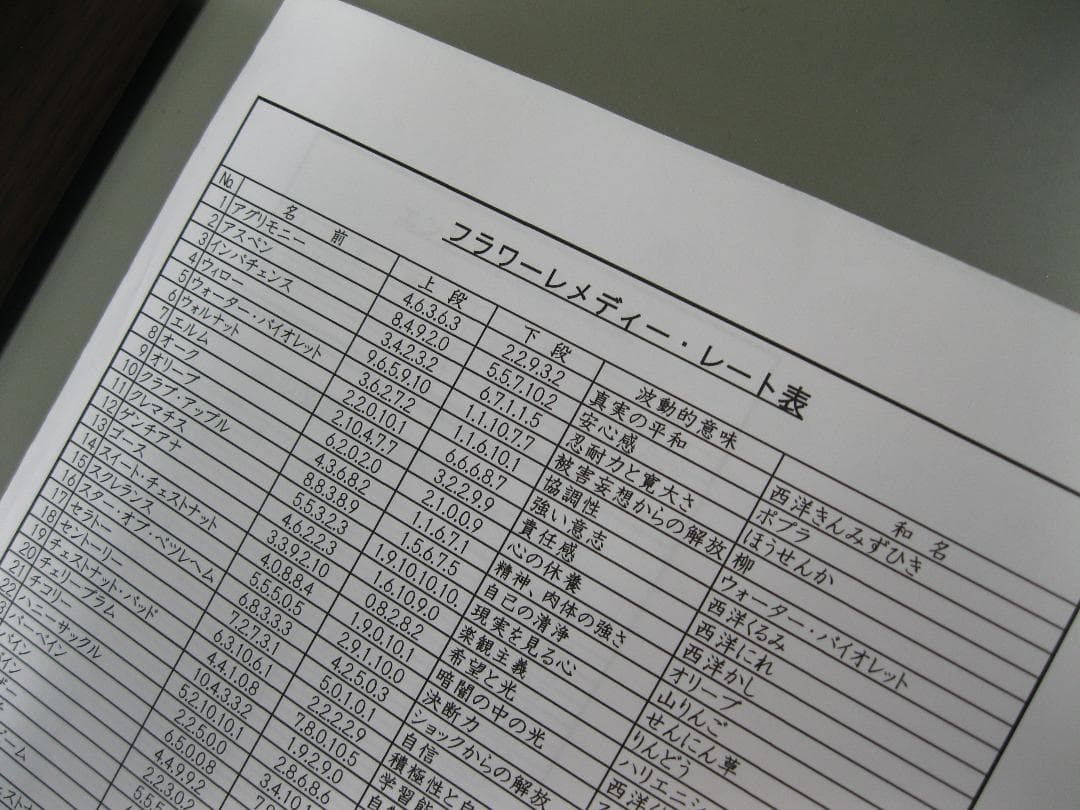 フラワーレメディー・レート表
No. 名前 上段 下段 波動的意味 和名
1 アグリモニー 4.6.3.6.3 2.2.9.3.2 真実の平和 西洋きんみずひき
2 アスペン 8.4.9.2.0 5.5.7.10.2 安心感 ポプラ
3 インパチェンス 3.4.2.3.2 6.7.1.1.5 忍耐力と寛大さ ほうせんか
4 ウィロー 9.6.5.9.10 1.1.10.7.7 被害妄想からの解放 柳
5 ウォーター・バイオレット 3.6.2.7.2 1.1.6.10.1 協調性 ウォーター・バイオレット
6 ウォルナット 2.2.0.10.1 6.6.6.8.7 強い意志 西洋くるみ
7 エルム 2.10.4.7.7 3.2.2.9.9 責任感 西洋にれ
8 オーク 6.2.0.2.0 2.1.0.0.9 心の休養 西洋かし
9 オリーブ 4.3.6.8.2 1.1.6.7.1 精神、肉体の強さ オリーブ
10 クラブ・アップル 8.8.3.8.9 1.5.6.7.5 自己の清浄 山りんご
11 クレマチス 5.5.3.2.3 1.9.10.10.10. 現実を見る心 せんにん草
12 ゲンチアナ 4.6.2.2.3 1.6.10.9.0 楽観主義 りんどう
13 ゴース 3.3.9.2.10 0.8.2.8.2 希望と光 ハリエニシ
14 スイート・チェストナット 4.0.8.8.4 1.9.0.10.1 暗闇の中の光 西洋
15 スクレランス 5.5.5.0.5 2.9.1.10.0 決断力
16 スター・オブ・ベツレヘム 6.8.3.3.3 4.2.5.0.3 ショックからの解放
17 セラトー 7.2.7.3.1 5.0.1.0.1 自信
18 セントーリー 6.3.10.6.1 2.2.2.2.9 積極性と自
19 チェストナット・バッド 4.4.1.0.8 7.8.0.10.5 学習能
20 チェリープラム 10.4.3.3.2 1.9.2.9.0
21 チコリー 5.2.10.10.1 2.8.6.8.6
22 ハニーサックル 2.2.5.0.0 3.4.10.
3 バーベイン 6.5.0.0.8
バイン 4.4.9.9.2
イン 2.2.3.0.2